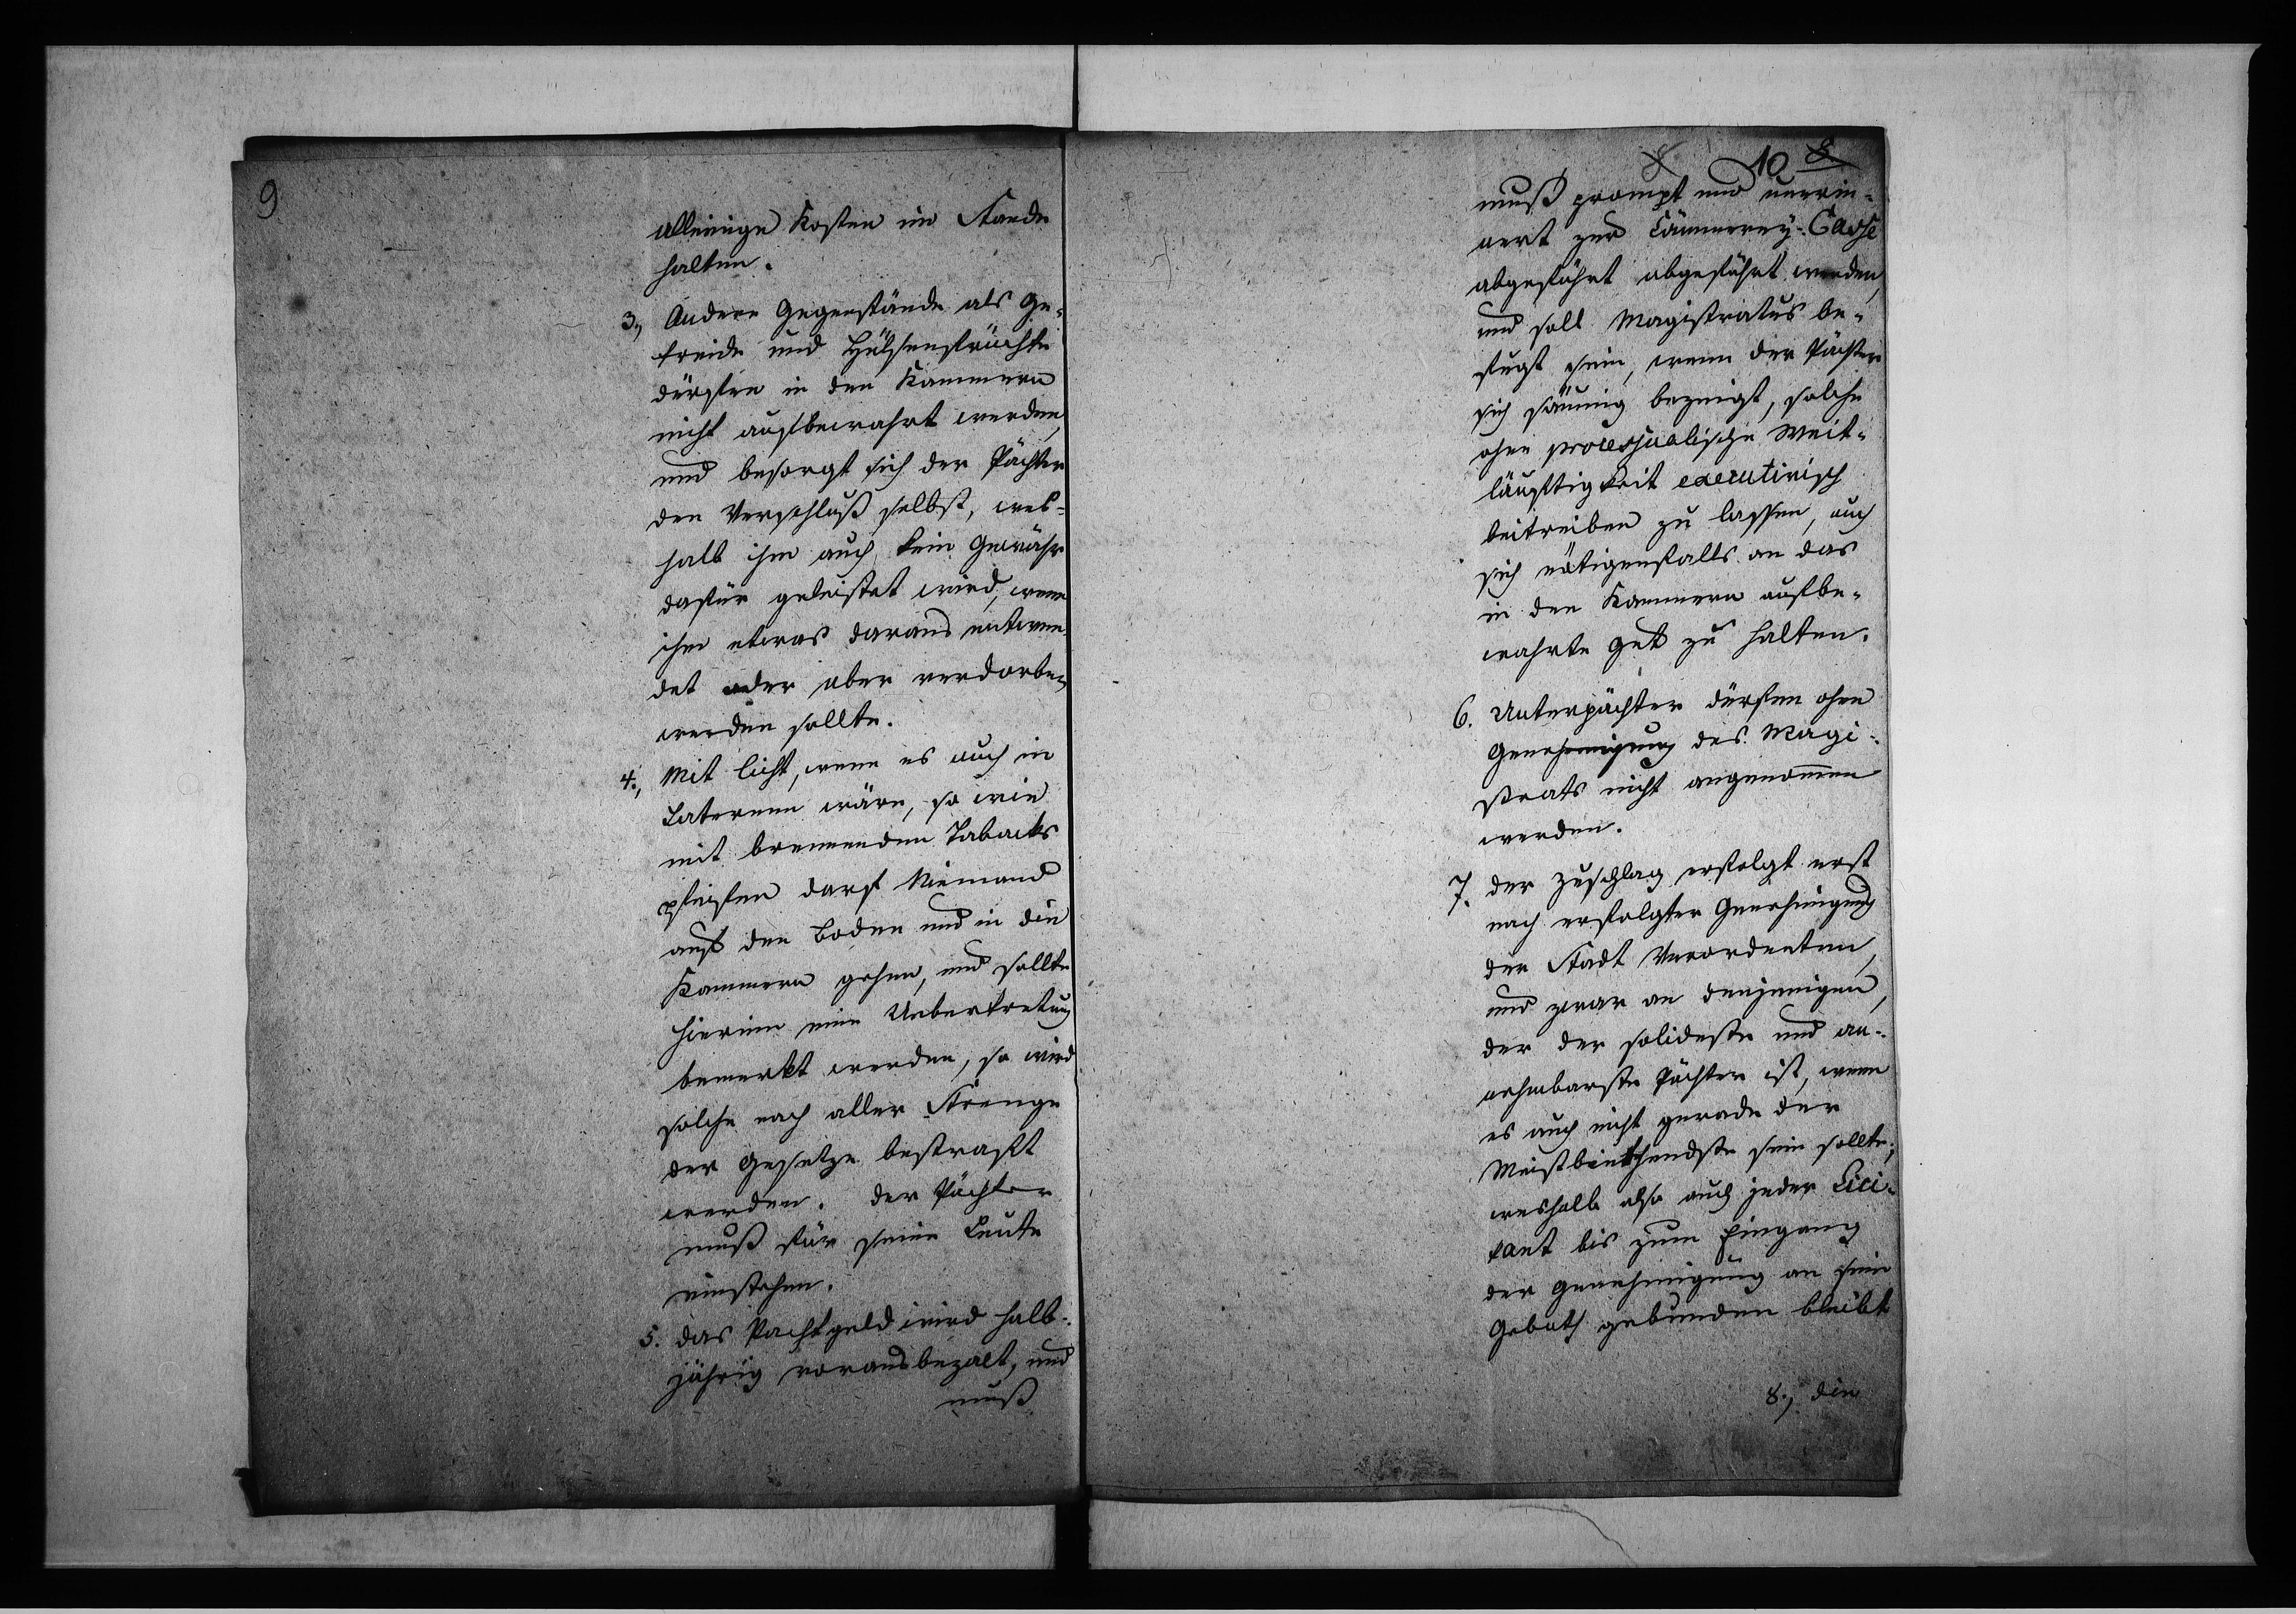 9
alleinige Kosten im Stande
halten.
3., Andere Gegenstände als Ge-
treide und Hülsenfrüchte
dürfen in den Kammern
nicht aufbewahrt werden,
und besorgt sich der Pächter
den Verschluß selbst, wes-
halb ihm auch kein Gewähr
dafür geleistet wird, wenn
ihm etwas daraus entwen-
det oder aber verdorben
werden sollte.
4., Mit Licht, wenn es auch in
Laternen wäre, so wie
mit brennenden Tabacks
pfeifen darf Niemand
auf den Boden und in die
Kammern gehen, und sollte
hierinn eine Uebertretung
bemerkt werden, so wird
solche nach aller Strenge
der Gesetze bestraft
werden. Der Pächter
muß für seine Leute
einstehen.
5. Das Pachtgeld wird halb-
jährig vorausbezalt, und
muß
8 10 8
muß prompt und unerin-
nert zur Cämmerey-Casse
abgeführt abgeführt werden,
und soll Magistratus be-
fugt sein, wenn der Pächter
sich säumig bezeigt, solche
ohne processualische Weit-
läuftigkeit executivisch
beitreiben zu lassen, auch
sich nötigenfalls an das
in den Kammern aufbe-
wahrte Gut zu halten.
6. Unterpächter dürfen ohne
Genehmigung des Magi-
strats nicht angenommen
werden.
7. Der Zuschlag erfolgt erst
nach erfolgter Genehmigung
der Stadt Verordneten,
und zwar an denjenigen,
der der solideste und an-
nehmbarste Pächter ist, wenn
es auch nicht gerade der
Meistbiethendste sein sollte;
weshalb also auch jeder Lici-
tant bis zum Eingang
der Genehmigung an sein
Geboth gebunden bleibt
8., die